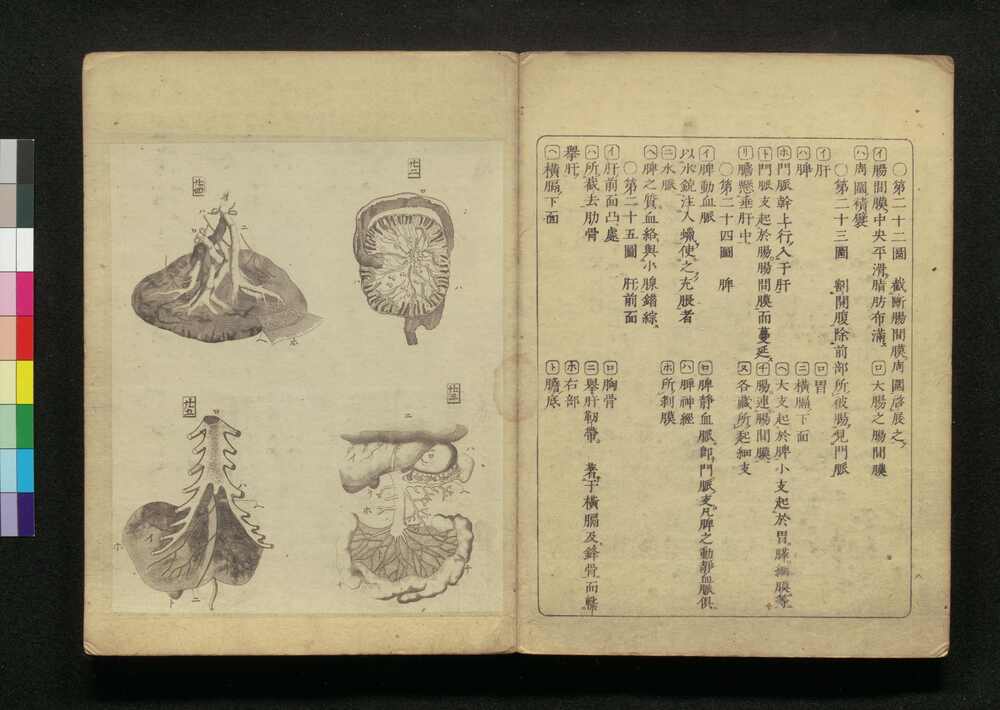 〇第二十二圖　截斷腸間膜周圍啓展之
㋑腸間膜中央平滑脂肪布滿　㋺大腸之腸間膜
㋩周圍積襞
〇第二十三圖　割開腹除前部所彼腸見門脈
㋑肝　㋺胃
㋩脾　㊁橫膈下面
㋭門脈幹上行入于肝　㋬大支起於脾小支起於胃膵網膜等
㋣門脈支起於腸腸間膜而蔓延　㋠腸連腸間膜
㋷膽懸垂肝中　㋦各藏所起細支
〇第二十四圖　脾
㋑脾動血脈　㋺脾靜血脈即門脈支凡脾之動靜血脈俱
以水銃注入蠟使之充脹者　㋩脾神經
㊁水脈　㋭所剥膜
㋬脾之質血絡與小腺錯綜
〇第二十五圖　肝前面
㋑肝前面凸處　㋺胸骨
㋩所截去肋骨　㊁舉肝靱帶　著于橫膈及鋒骨而
舉肝　㋭右部
㋬橫膈下面　㋣膽底
廿二
廿四
廿三
廿五